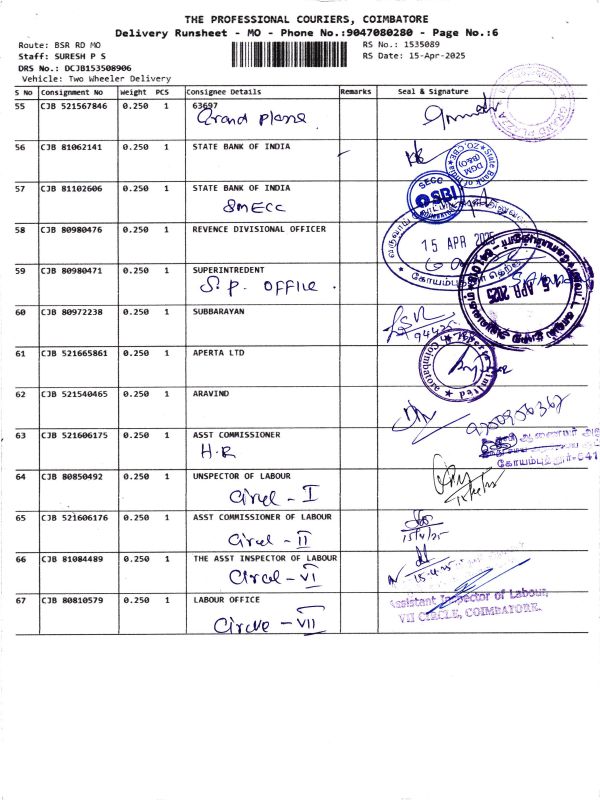 THE PROFESSIONAL COURIERS, COIMBATORE
Delivery Runsheet - MO - Phone No.:9047080280 - Page No.:6
Route: BSR RD MO
RS No.: 1535089
Staff: SURESH P S
RS Date: 15-Apr-2025
DRS No.: DCJB153508906
Vehicle: Two Wheeler Delivery
S No Consignment No Weight PCS Consignee Details Remarks Seal & Signature
55 CJB 521567846 0.250 1 63697
Grand Plaza
56 CJB 81062141 0.250 1 STATE BANK OF INDIA
State Bank of India
DGM (B&O)
57 CJB 81102606 0.250 1 STATE BANK OF INDIA
SMECC
SECC
SBI
58 CJB 80980476 0.250 1 REVENCE DIVISIONAL OFFICER
15 APR 2025
59 CJB 80980471 0.250 1 SUPERINTREDENT
S.P. OFFICE.
APR 2025
60 CJB 80972238 0.250 1 SUBBARAYAN
94425
61 CJB 521665861 0.250 1 APERTA LTD
62 CJB 521540465 0.250 1 ARAVIND
63 CJB 521606175 0.250 1 ASST COMMISSIONER
H.R
ஆணையர்
கோயம்புத்தூர்-641
64 CJB 80850492 0.250 1 UNSPECTOR OF LABOUR
Circl - I
65 CJB 521606176 0.250 1 ASST COMMISSIONER OF LABOUR
Circl - II
15/4/25
66 CJB 81084489 0.250 1 THE ASST INSPECTOR OF LABOUR
Circl - VI
15-4-25
67 CJB 80810579 0.250 1 LABOUR OFFICE
Circle - VII
Assistant Inspector of Labour,
VII CIRCLE, COIMBATORE.